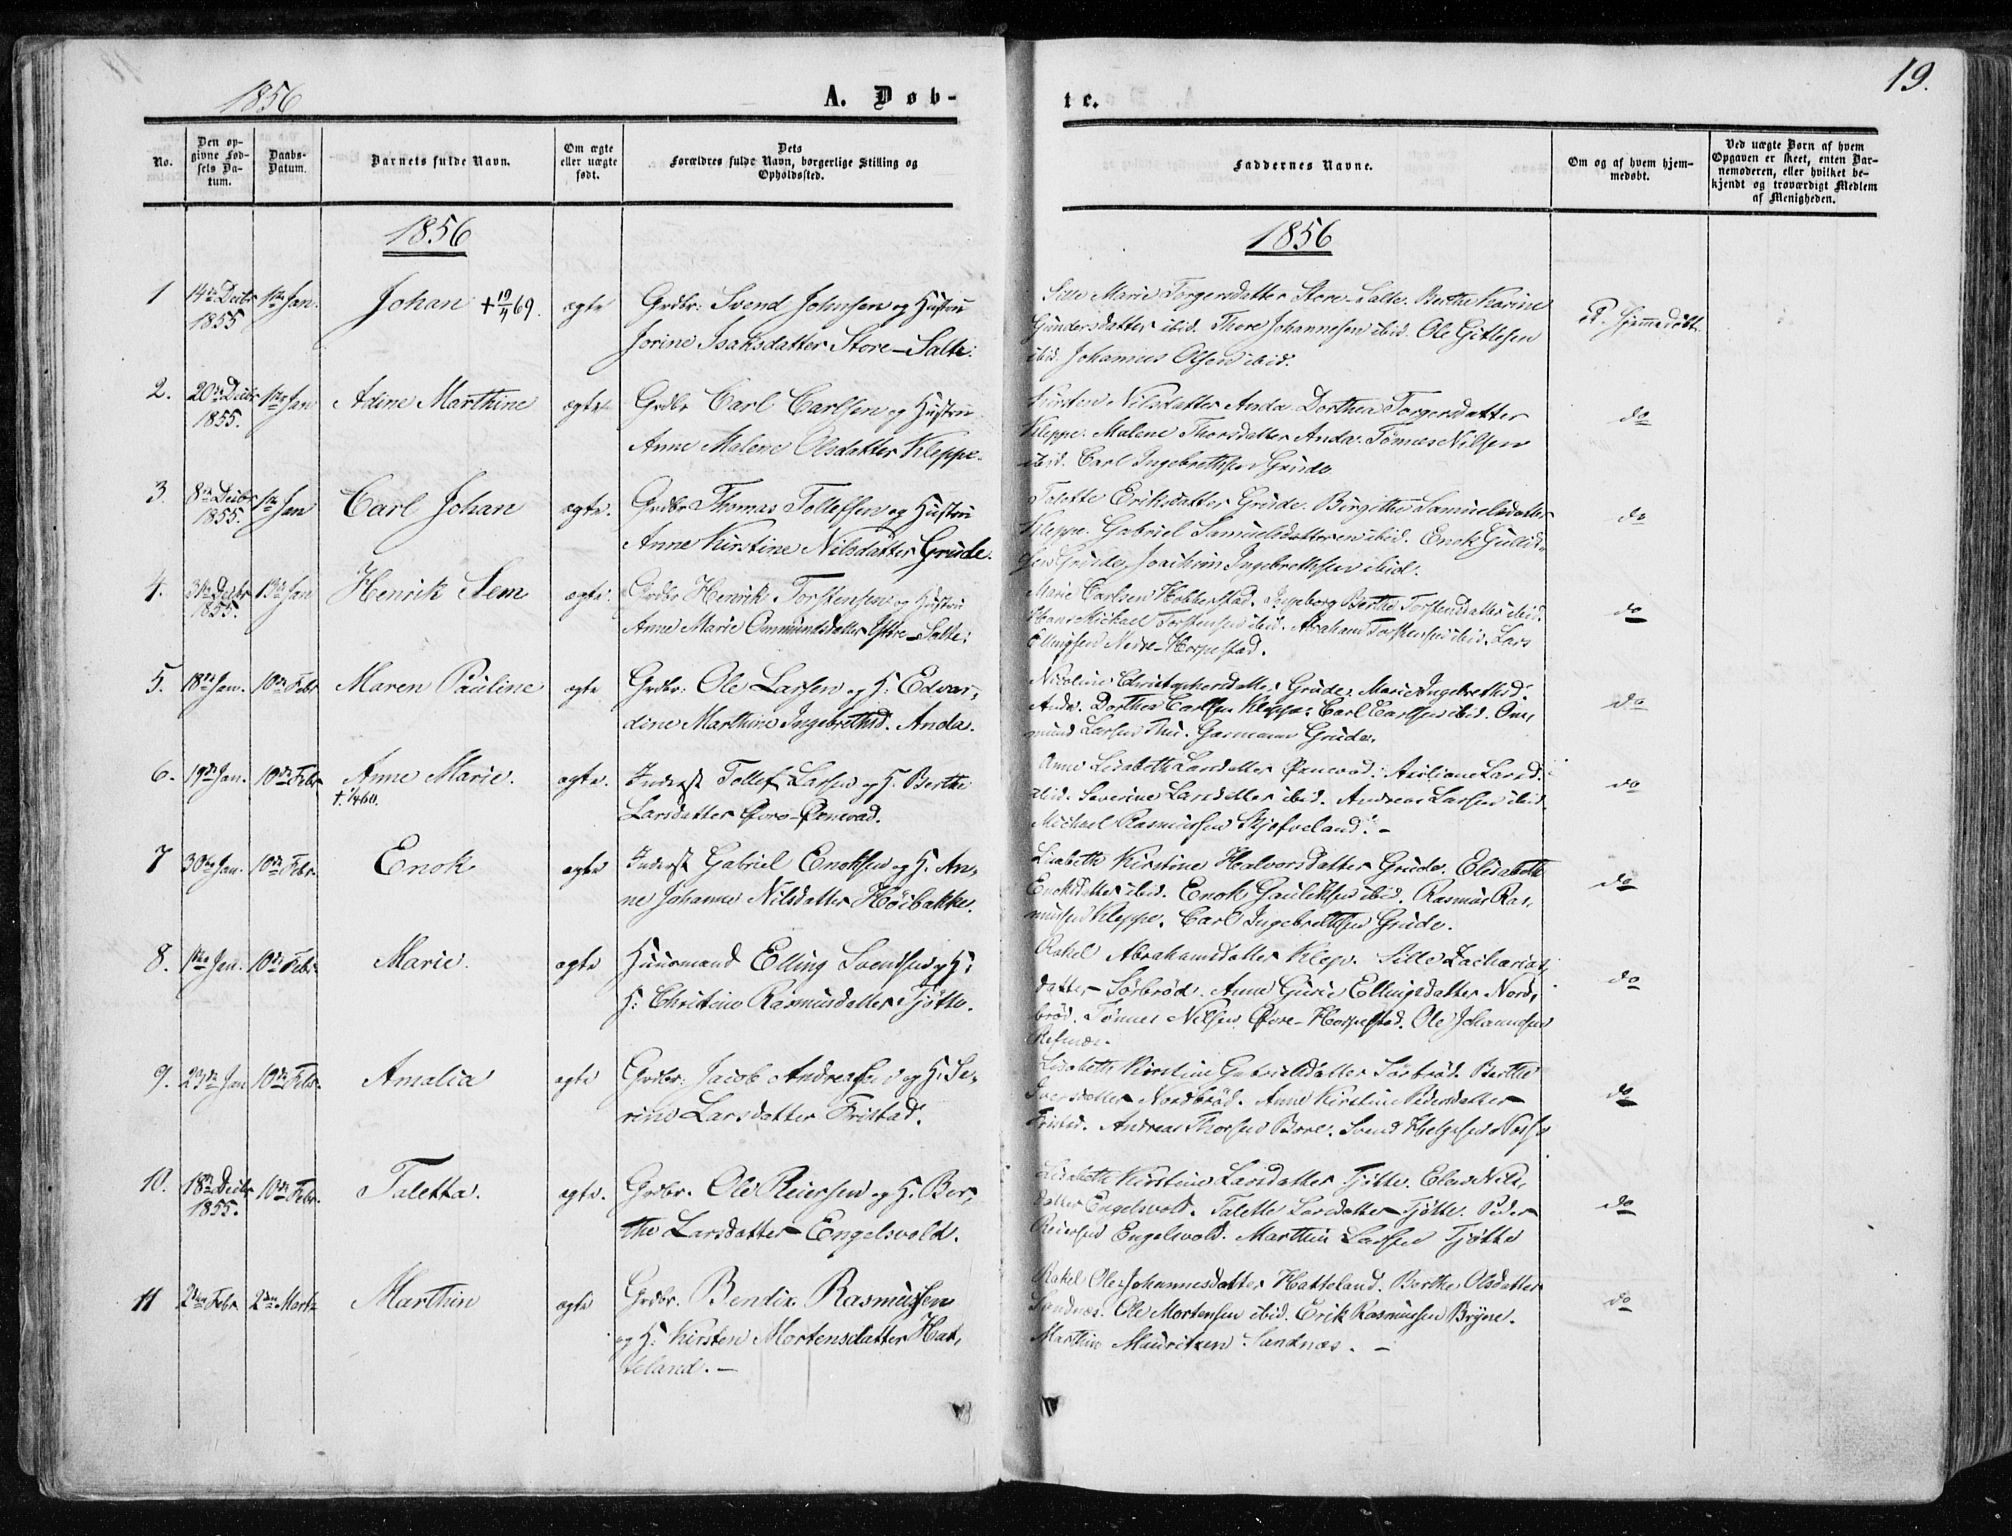 1856
A. Døb-
te.
19.
No.
Den opgivne Fødsels Datum.
Daabs-Datum.
Barnets fulde Navn.
Om ægte eller uægte født.
Dets Forældres fulde Navn, borgerlige Stilling og Opholdssted.
Faddernes Navne.
Om og af hvem hjemmedøbt.
Ved uægte Børn af hvem Opgaven er skeet, enten Barnemoderen, eller hvilket bekjendt og troværdigt Medlem af Menigheden.
1856
1856
1 14de Decbr 1855 1ste Jan. Johan + 19/4 69. ægte
Grdbr: Svend Johnsen og Hustru
Jorine Isaksdatter Store-Salte.
Sille Marie Torgersdatter Store-Salte. Berthe Karine
Gundersdatter ibid. Thore Johannesen ibid. Ole Gitlesen
ibid. Johannes Olsen ibid.
Ei hjemmedøbt.
2. 20de Decbr 1855. 1ste Jan Adine Marthine ægte
Grdbr Carl Carlsen og Hustru
Anne Malene Olsdatter Kleppe.
Kirsten Nilsdatter Anda. Dorthea Torgersdatter
Kleppe. Malene Thorsdatter Anda. Tønnes Nilsen
ibid. Carl Ingebrethsen Grude
do
3. 8de Decbr 1855. 1ste Jan Carl Johan ægte.
Grdbr Thomas Tollefsen og Hustru
Anne Kirstine Nilsdatter Grude.
Talette Eriksdatter Grude. Birgithe Samuelsdatter
Kleppe. Gabriel Samuelsdatteren ibid. Enok
Grude. Joachim Ingebrethsen ibid.
do
4. 31te Decbr 1855. 13de Jan Henrik Sem ægte.
Grdbr Henrik Torstensen og Hustru
Anne Marie Ommundsdatter Øvre-Salte.
Marie Carlsen Hobberstad. Ingeborg Berthe Torstensdatter ibid.
Hans Michael Torstensen ibid. Abraham Torstensen ibid. Lars
Ellingsen Nedre-Horpestad.
do
5. 18de Jan. 10de Febr Maren Pauline ægte
Grdbr: Ole Larsen og H: Edvar-
dine Marthine Ingebrethsd. Anda.
Nicoline Christophersdatter Grude. Marie Ingebrethsd.
Anda. Dorthea Carlsen Kleppe. Carl Carlsen ibid. Om-
mund Larsen Thu. Garmann Grude.
do
6. 19de Jan. 10de Febr. Anne Marie. ægte.
Inderst Tollef Larsen og H. Berthe
Larsdatter Øvre-Øxnevad.
Anne Lisabeth Larsdatter Øxnevad. Juliane Larsd.
ibid. Severine Larsdatter ibid. Andreas Larsen ibid.
Michael Rasmussen Skjefveland. –
do
7 30te Jan. 10de Febr. Enok ægte
Inderst Gabriel Enoksen og H. An-
ne Johanne Nilsdatter Høibakke.
Lisabeth Kirstine Halvorsdatter Grude. Elisabeth
Enoksdatter ibid. Enok Gauleksen ibid. Rasmus Ras-
mussen Kleppe. Carl Ingebrethsen Grude.
do
8. 1ste Jan. 10de Febr. Marie. ægte
Huusmand Elling Svendsen og H:
H: Christine Rasmusdatter Tjøtte.
Rakel Abrahamsdatter Klep. Sille Zacharias-
datter Sørbrød. Anne Gurie Ellingsdatter Nord-
brød. Tønnes Nilsen Øvre-Horpestad. Ole Johannesen
Refsnæs.
do
9. 23de Jan 10de Febr. Amalia ægte
Grdbr: Jacob Andreasen og H. Se-
rine Larsdatter Fristad.
Lisabeth Kirstine Gabrielsdatter Sørbrød. Berthe
Iversdatter Nordbrød. Anne Kirstine Pedersdatter
Fristad. Andreas Thorsen Bore. Svend Helgesen
do
10. 18de Decbr 1855. 10de Febr. Taletta. ægte.
Grdbr. Ole Reiersen og H. Ber-
the Larsdatter Engelsvold.
Lisabeth Kirstine Larsdatter Tjøtte. Elen Nils-
datter Engelsvold. Talette Larsdatter Tjøtte. Peder
Reiersen Engelsvold. Marthin Larsen Tjøtte
do
11 2den Febr. 2den Marts Marthin ægte
Grdbr. Bendix Rasmussen
og H: Kirsten Mortensdatter Hat-
teland. –
Rakel Ole Johannesdatter Hatteland. Berthe Olsdatter
Sandnæs. Ole Mortensen ibid. Erik Rasmussen Bryne.
Marthin Mauritzen Sandnæs. –
do